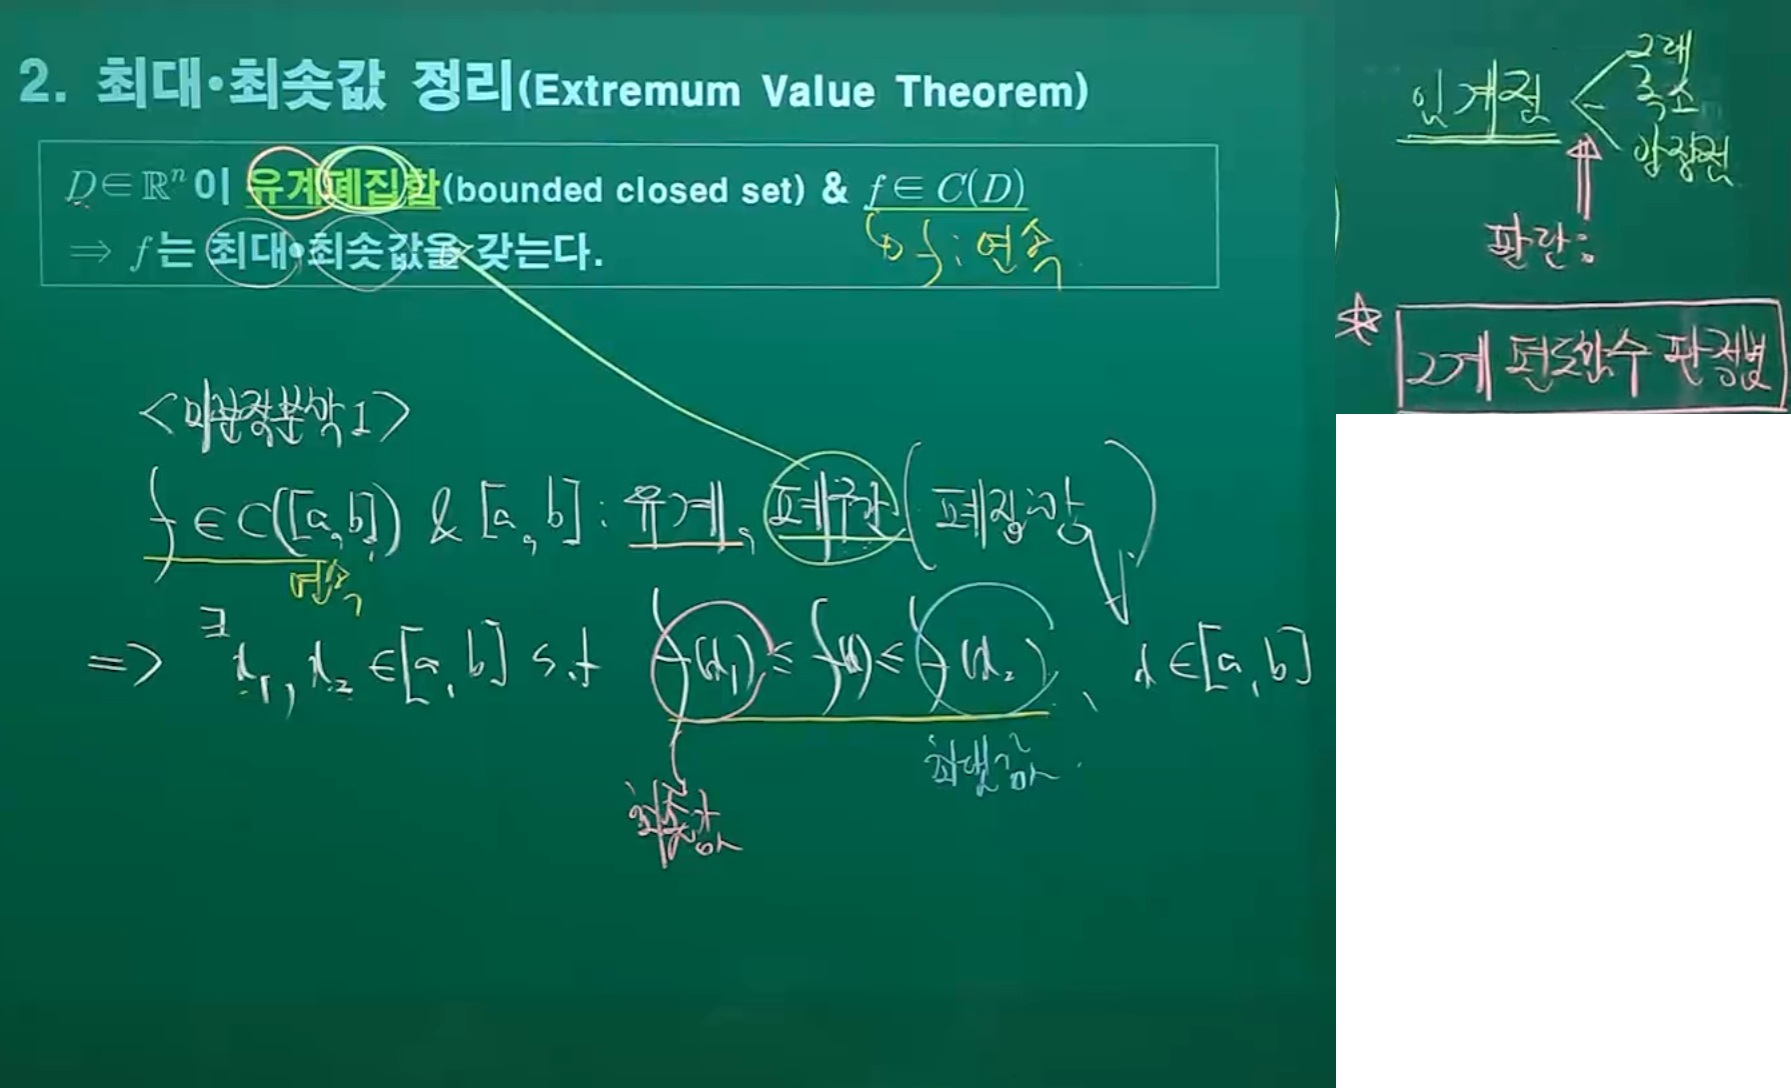 2. 최대·최솟값 정리(Extremum Value Theorem)
D∈ℝⁿ이 유계폐집합(bounded closed set) & f∈C(D)
⇒ f는 최대·최솟값을 갖는다.
f : 연속
<미분적분학 1>
f ∈ C([a, b]) & [a, b] : 유계, 폐구간 (폐집합)
연속
=> ∃x₁, x₂ ∈ [a, b] s.t f(x₁) ≤ f(x) ≤ f(x₂), x ∈ [a, b]
최솟값
최댓값
임계점
극대
극소
안장점
판단 :
☆ 2계 편도함수 판정법